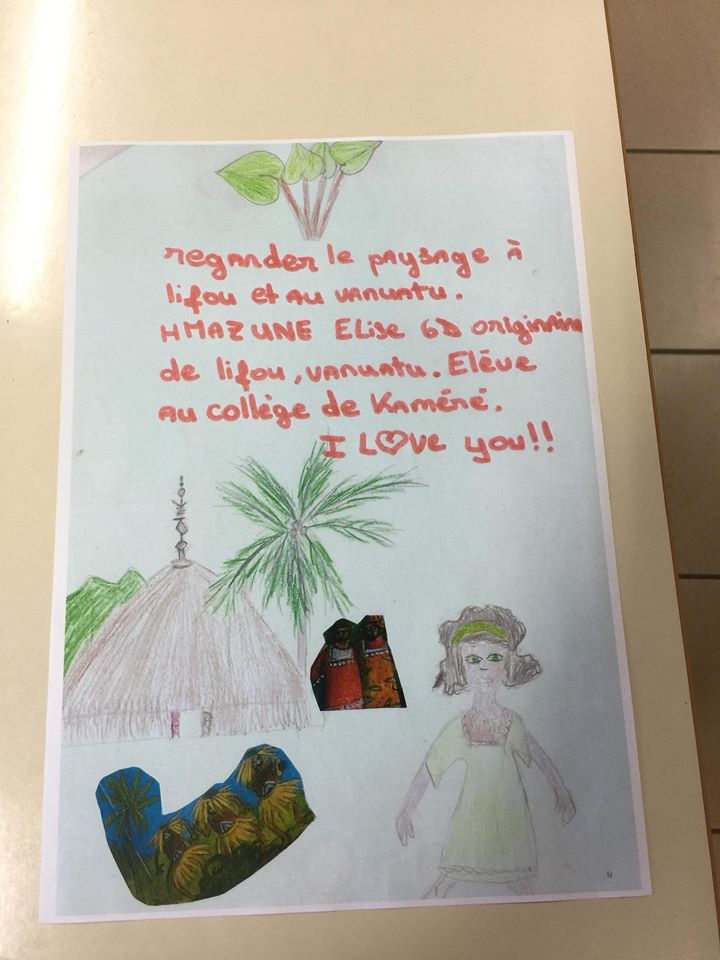 regarder le paysage à
lifou et au vanuatu.
HMAZUNE Elise 6D originaire
de lifou, vanuatu. Elève
au collège de Kaméré.
I LOVE you!!